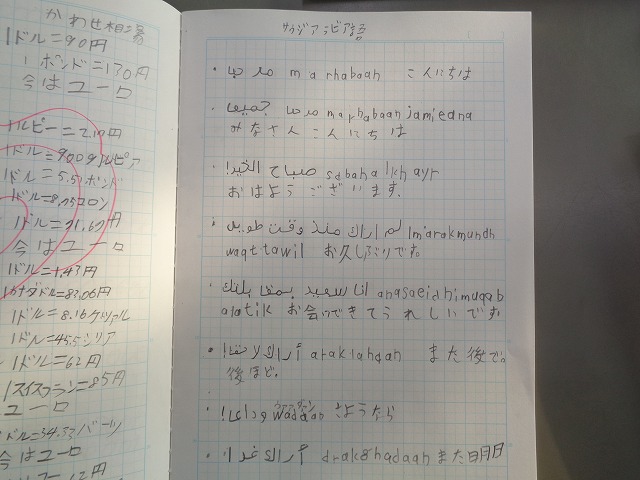 かわせ相場
1ドル=90円
1ポンド=130円
今はユーロ
1ルピー=2.10円
1ドル=9009ルピア
1ドル=5.51ポンド
1ドル=8.75コロン
1ドル=91.67円
今はユーロ
1ドル=1.43円
1カナダドル=83.06円
1ドル=8.16ケツァル
1ドル=45.5シリア
1ドル=62円
1スイスフラン=85円
ユーロ
ドル=34.33バーツ
今はユーロ
サウジアラビア語
• مرحبا marhabaan こんにちは
• مرحبا جميعا marhabaan jamieana
みなさん こんにちは
• صباح الخير! sabaha lkhayr
おはよう ございます.
• لم أراك منذ وقت طويل lm'arakmundh
waqttawil お久しぶりです。
• انا سعيد بمقابلتك anasaeidhimuqab
alatik お会いできてうれしいです
• أراك لاحقا! araklahqan また後で。
後ほど.
• وداعا! wadaeo さようなら
• أراك غدا! arakghadaan また明日